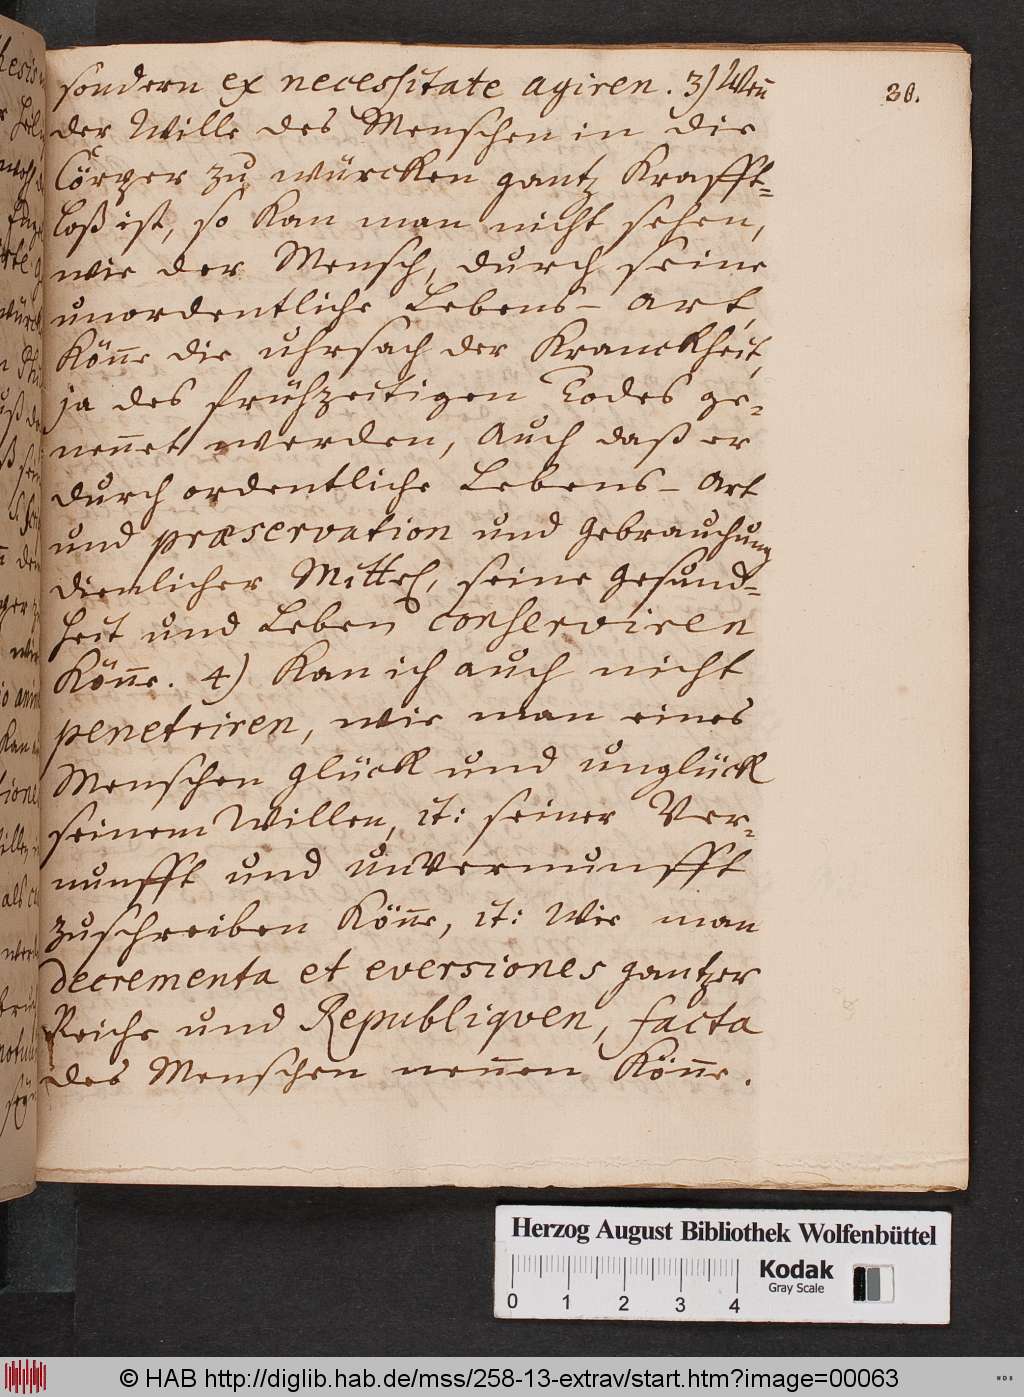 30.
sondern ex necessitate agiren. 3) Wen̄
der Wille des Menschen in die
Cörper zu würcken gantz Krafft=
loß ist, so kan man nicht sehen,
wie der Mensch, durch seine
unordentliche Lebens-art,
Kön̄e die uhrsach der Kranckheit,
ja des frühzeitigen Todes ge-
nen̄et werden, auch daß er
durch ordentliche Lebens-art
und præservation und gebrauchung
dienlicher Mittel, seine gesund=
heit und Leben conserviren
Kön̄e. 4) Kan ich auch nicht
penetriren, wie man eines
Menschen glück und unglück
seinem Willen, it: seiner Ver-
nunfft und unVernunfft
zuschreiben Kön̄e, it: Wie man
decrementa et eversiones gantzer
Reiche und Republiqven, facta
des Menschen nen̄en Kön̄e.
Herzog August Bibliothek Wolfenbüttel
Kodak
Gray Scale
0 1 2 3 4
© HAB http://diglib.hab.de/mss/258-13-extrav/start.htm?image=00063